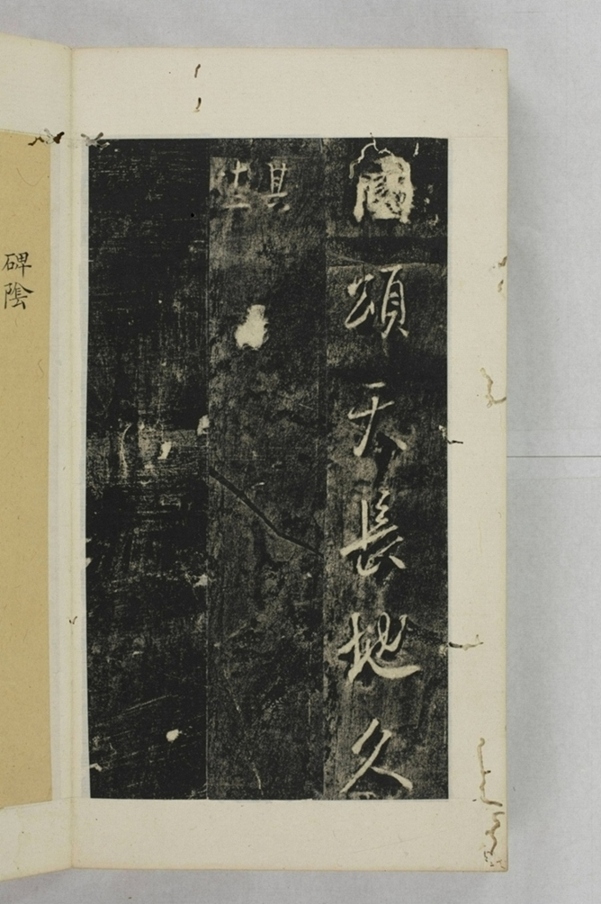 國頌天長地久
其
碑陰